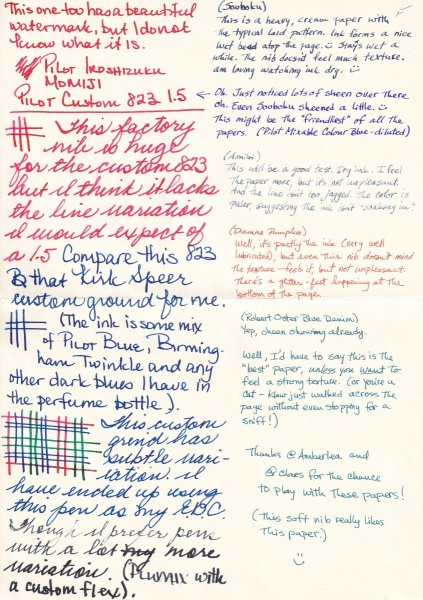 This one too has a beautiful
watermark, but I do not
know what it is.
Pilot Iroshizuku
Momiji
Pilot Custom 823 1.5
This factory
nib is huge
for the custom 823
but I think it lacks
the line variation
I would expect of
a 1.5 Compare this 823
to that Kirk Speer
custom ground for me.
(The ink is some mix
of Pilot Blue, Birming-
ham Twinkle and any
other dark blues I have in
the perfume bottle).
This custom
grind has
subtle vari-
iation. I
have ended up using
this pen as my EDC.
Though I prefer pens
with a lot my more
variation. (Plumix with
a custom flex).
(Souboku)
This is a heavy, cream paper with
the typical laid pattern. Ink forms a nice
wet bead atop the page. Stays wet a
while. The nib doesn't feel much texture.
am loving watching ink dry.
Oh. Just noticed lots of sheen over there
oh. Even Souboku sheened a little.
This might be the "friendliest" of all the
papers. (Pilot Mixable Colour Blue-diluted)
This will be a good test. Dry ink. I feel
the paper more, but it's not unpleasant.
And the line isn't too jagged. The color is
paler, suggesting the ink isn't "soaking in".
(Diamine Pumpkin)
Well, it's partly the ink (very well
lubricated), but even this nib doesn't mind
the texture - feels it, but not unpleasant.
There's a glitter-fest happening at the
bottom of the page.
(Robert Oster Blue Denim)
Yep, sheen showing already.
Well, I'd have to say this is the
"best" paper, unless you want to
feel a strong texture. (or you're a
cat - Klaw just walked across the
page without even stopping for a
sniff!)
Thanks @Amberlea and
@claes for the chance
to play with these papers!
(This soft nib really likes
this paper.)